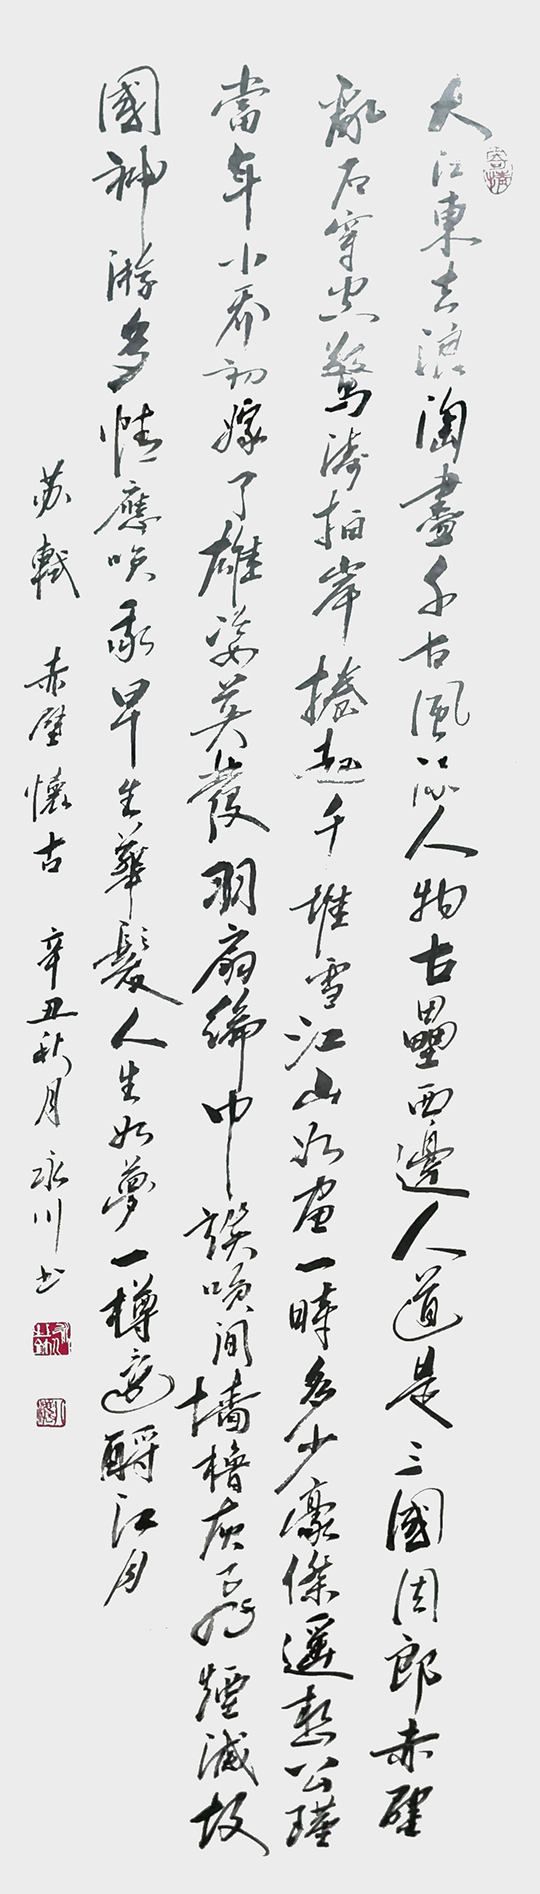 大江東去浪淘盡千古風流人物古壘西邊人道是三國周郎赤壁
亂石穿空驚濤拍岸捲起千堆雪江山如畫一時多少豪傑遥想公瑾
當年小喬初嫁了雄姿英發羽扇綸巾談笑間墻櫓灰飛煙滅故
國神游多情應笑我早生華髮人生如夢一樽還酹江月
苏軾 赤壁懷古 辛丑秋月 永川书